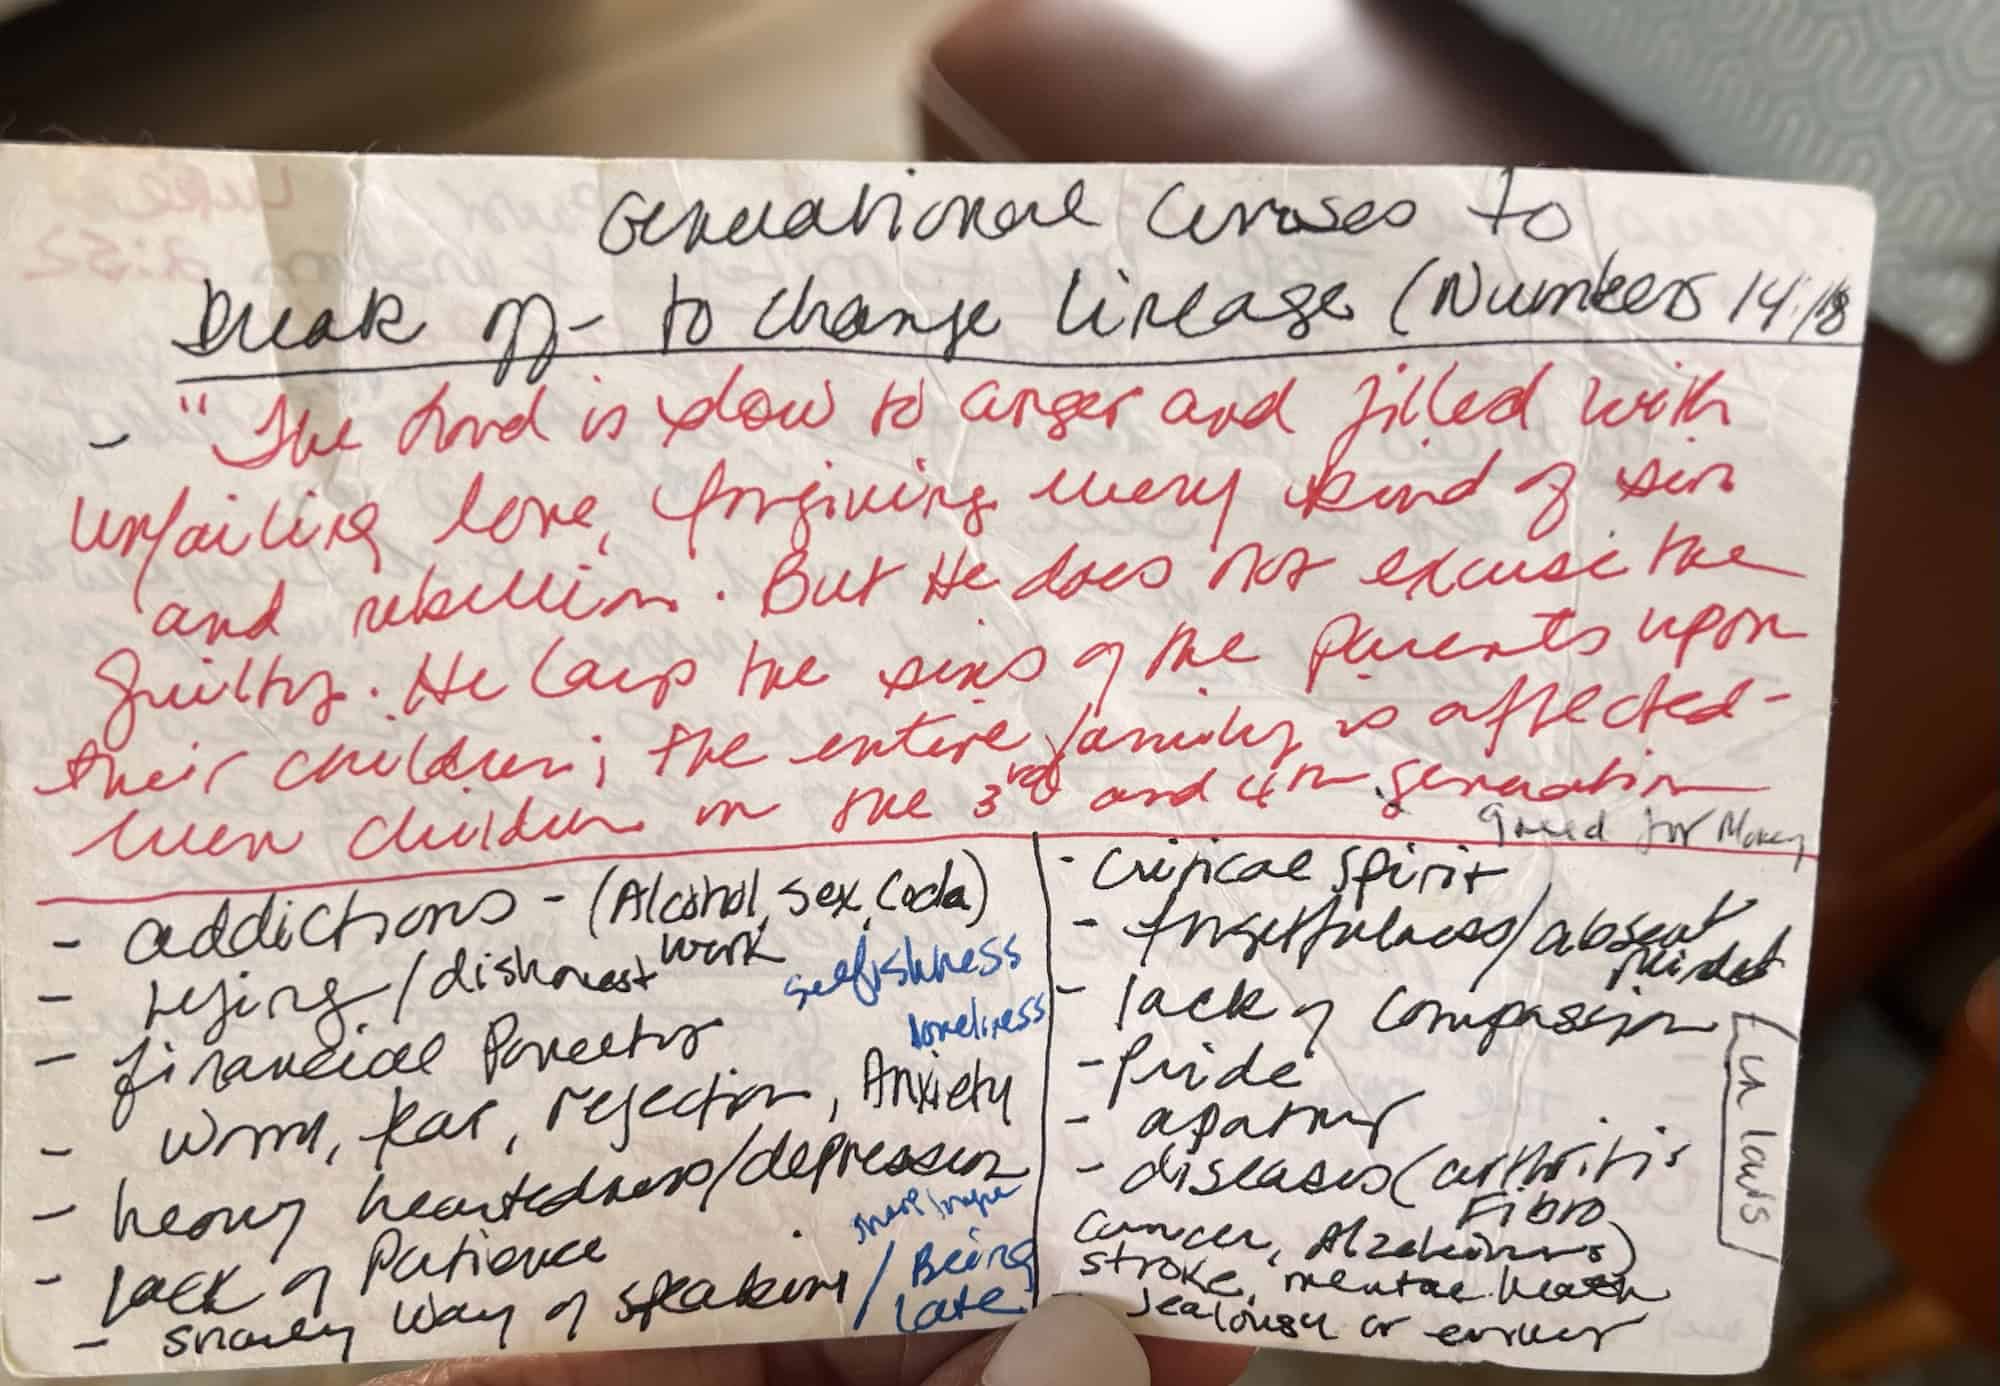 Generational Curses to
Break off - to change lineage (Numbers 14:18
- "The Lord is slow to anger and filled with
unfailing love, forgiving every kind of sin
and rebellion. But He does not excuse the
guilty. He lays the sins of the parents upon
their children; the entire family is affected -
even children in the 3rd and 4th generation
greed for Money
- addictions - (Alcohol, sex, Coda)
work
- lying/dishonest
selfishness
- financial Poverty
loneliness
- worry, fear, rejection, Anxiety
- heavy heartedness/depression
- lack of Patience
- snarly way of speaking / Being
late
- Critical Spirit
- forgetfulness/absent
minded
- lack of compassion
- Pride
- apathy
- diseases (arthritis
Fibro
Cancer, Alzheimers)
stroke, mental health
- Jealousy or envy
In laws
Luke
2:52